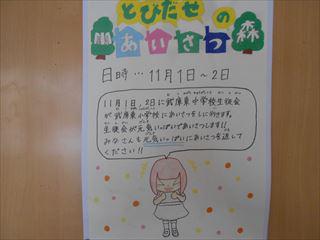 とびだせの
あいさつ森
日時…11月1日～2日
11月1日、2日に武庫東中学校生徒会
が武庫東小学校にあいさつをしに行きます。
生徒会が元気いっぱいであいさつします!!
みなさんも元気いっぱいにあいさつを返して
ください!!